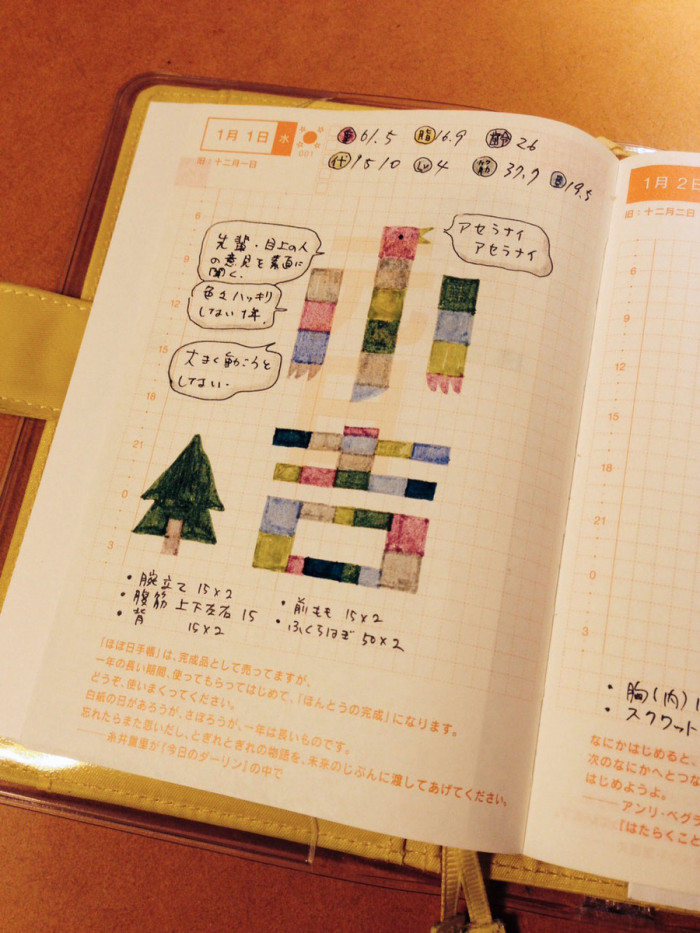 1月 1日 水
201
旧:十二月一日
重 61.5 脂 16.9 齢 26
代 1510 Lv 4 筋 37.7 19.5
先輩・目上の人
の意見を素直に
聞く.
色をハッキリ
しない1年.
大きく動こうと
しない.
アセラナイ
アセラナイ
6
9
12
15
18
21
0
3
・腕立て 15×2
・腹筋 上下左右 15
・背 15×2
・前もも 15×2
・ふくらはぎ 50×2
「ほぼ日手帳」は、完成品として売ってますが、
一年の長い期間、使ってもらってはじめて、「ほんとうの完成」になります。
どうぞ、使いまくってください。
白紙の日があろうが、さぼろうが、一年は長いものです。
忘れたらまた思いだし、とぎれとぎれの物語を、未来のじぶんに渡してあげてください。
——糸井重里が『今日のダーリン』の中で
1月 2日
旧:十二月二日
6
9
12
15
18
21
0
3
・胸(内)
・スクワット
なにかはじめると、
次のなにかへとつな
はじめようよ。
——アンリ・ベグラ
『はたらくこと